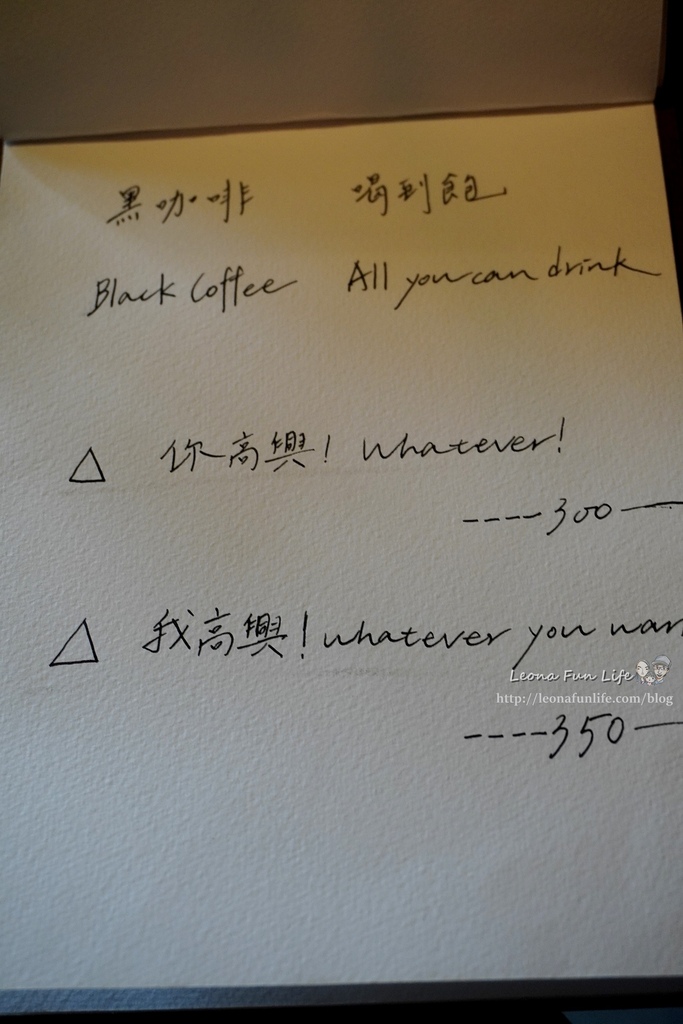 黑咖啡 喝到飽
Black Coffee All you can drink
△ 你高興! Whatever!
----300—
△ 我高興! Whatever you wan
Leona Fun Life
http://leonafunlife.com/blog
----350—